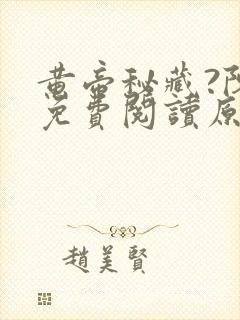 黄帝秘藏?阝
免費閱讀原
趙美賢